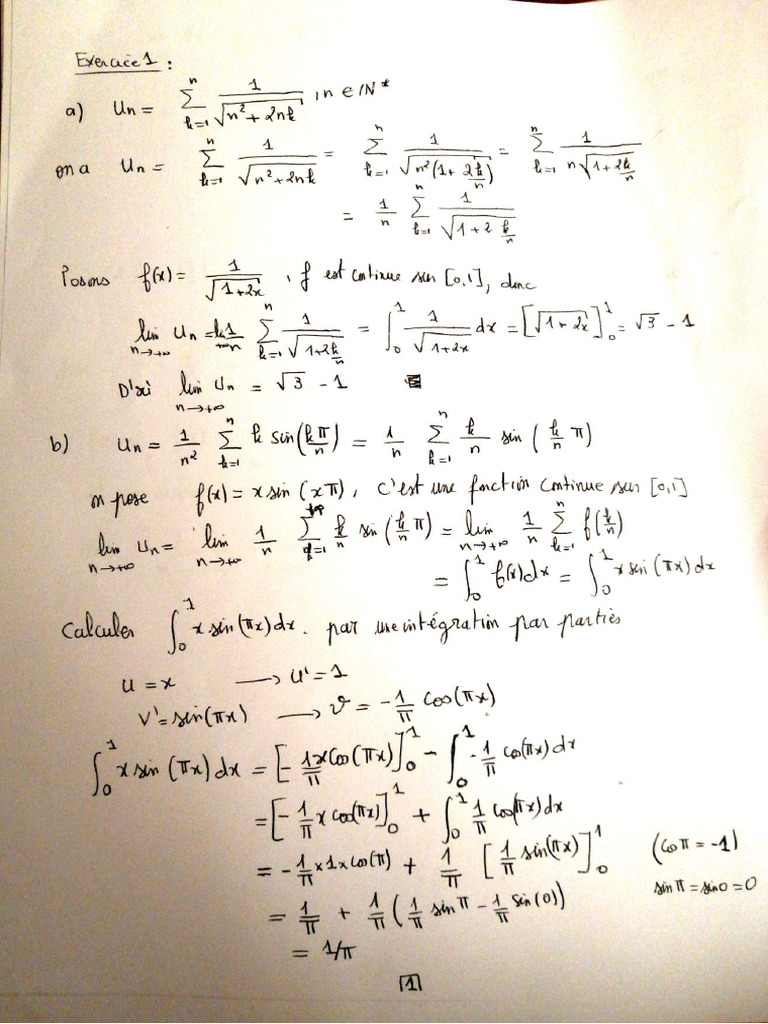 Exercice 1 :
a) Un = ∑_{k=1}^{n} 1/√(n²+2nk) , n ∈ IN*
on a Un = ∑_{k=1}^{n} 1/√(n²+2nk) = ∑_{k=1}^{n} 1/√(n²(1+2k/n)) = ∑_{k=1}^{n} 1/(n√(1+2k/n))
= 1/n ∑_{k=1}^{n} 1/√(1+2 k/n)
Posons f(x) = 1/√(1+2x) , f est continue sur [0,1], donc
lim_{n→+∞} Un = lim 1/n ∑_{k=1}^{n} 1/√(1+2k/n) = ∫_0^1 1/√(1+2x) dx = [√(1+2x)]_0^1 = √3 - 1
D'où lim_{n→+∞} Un = √3 - 1
b) Un = 1/n² ∑_{k=1}^{n} k sin(kπ/n) = 1/n ∑_{k=1}^{n} k/n sin(k/n π)
on pose f(x) = x sin(xπ), c'est une fonction continue sur [0,1]
lim_{n→+∞} Un = lim_{n→+∞} 1/n ∑_{k=1}^{+∞} k/n sin(k/n π) = lim_{n→+∞} 1/n ∑_{k=1}^{n} f(k/n)
= ∫_0^1 f(x)dx = ∫_0^1 x sin(πx) dx
Calculer ∫_0^1 x sin(πx) dx. par une intégration par parties
u = x → u' = 1
v' = sin(πx) → v = -1/π cos(πx)
∫_0^1 x sin(πx) dx = [-1/π x cos(πx)]_0^1 - ∫_0^1 -1/π cos(πx) dx
= [-1/π x cos(πx)]_0^1 + ∫_0^1 1/π cos(πx) dx
= -1/π × 1 × cos(π) + 1/π [1/π sin(πx)]_0^1 (cos π = -1)
= 1/π + 1/π (1/π sin π - 1/π sin(0)) sin π = sin 0 = 0
= 1/π
1